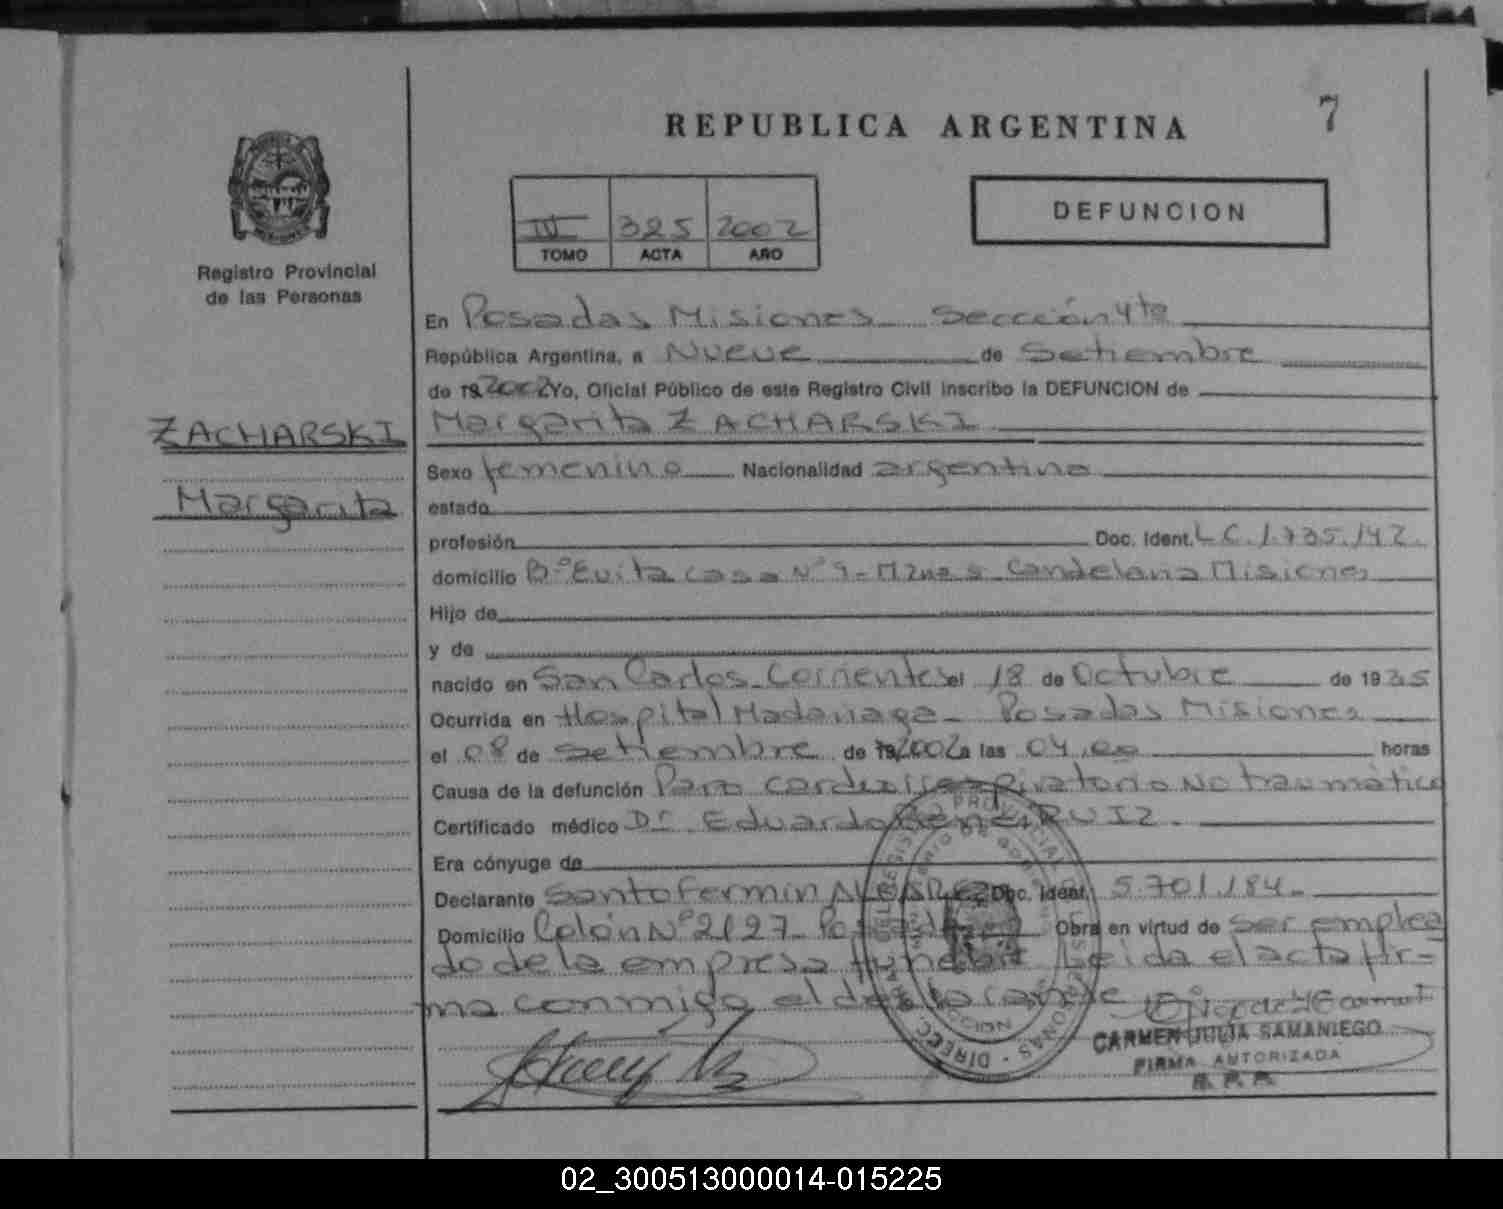 7
REPUBLICA ARGENTINA
DEFUNCION
IV 325 2002
TOMO ACTA AÑO
Registro Provincial
de las Personas
En Posadas Misiones Seccción 4ta
República Argentina, a Nueve de Setiembre
de 19 2002 Yo, Oficial Público de este Registro Civil inscribo la DEFUNCION de
ZACHARSKI
Margarita ZACHARSKI
Sexo femenino Nacionalidad argentina
Margarita
estado
profesión Doc. Ident. L C. 1.735.142.
domicilio Bº Evita casa Nº 9 - Candelaria Misiones
Hijo de
y de
nacido en San Carlos - Corrientes el 18 de Octubre de 1935
Ocurrida en Hospital Madariaga - Posadas Misiones
el 08 de Setiembre de 19 2002 a las 04,00 horas
Causa de la defunción Paro cardiorrespiratorio No traumático
Certificado médico Dr. Eduardo René RUIZ.
Era cónyuge de
Declarante Santo Fermin Doc. Ident. 5.701.184.
Domicilio Colón Nº 2127 - Posadas Obra en virtud de ser emplea
do de la empresa funebre Leida el acta fir-
ma conmigo el declarante
CARMEN JULIA SAMANIEGO
FIRMA AUTORIZADA
R. P. P.
02_300513000014-015225